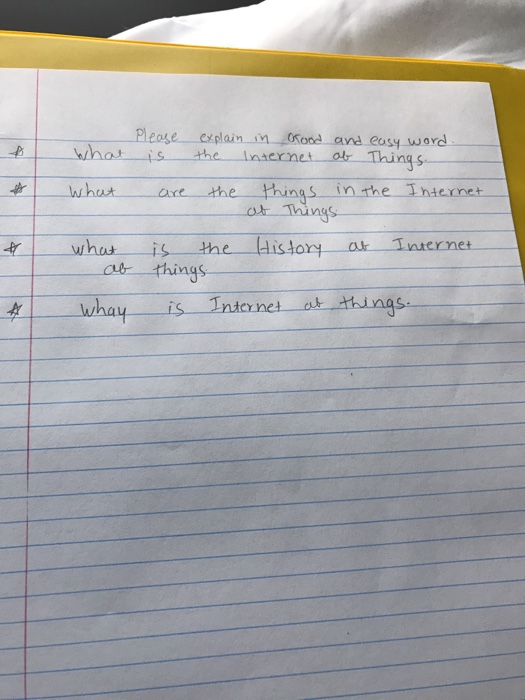 Please explain in Good and easy word.
☆ What is the Internet ab Things.
☆ What are the things in the Internet
at Things
☆ what is the History at Internet
ab things
☆ whay is Internet at things.